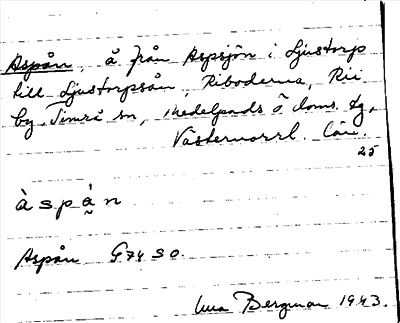 Aspån, å från Aspsjön i Ljustorp
till Ljustorpsån, Riboderna, Rii
by, Timrå sn, Medelpads ö doms. dg,
Västernorrl. län.
25
àspå̰n
Aspån G74 SO.
Bergman 1943.